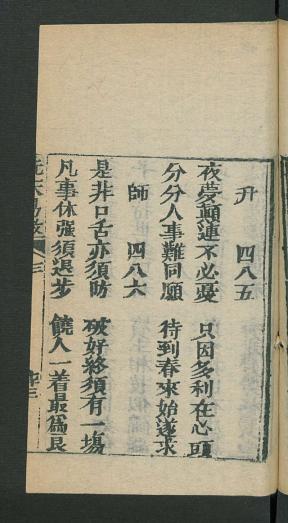 升 四八五
夜夢顛連不必憂 只因多利在心頭
分分人事難同願 待到春來始遂求
師 四八六
是非口舌亦須防 破好終須有一塲
凡事休强須退步 饒人一着最爲良